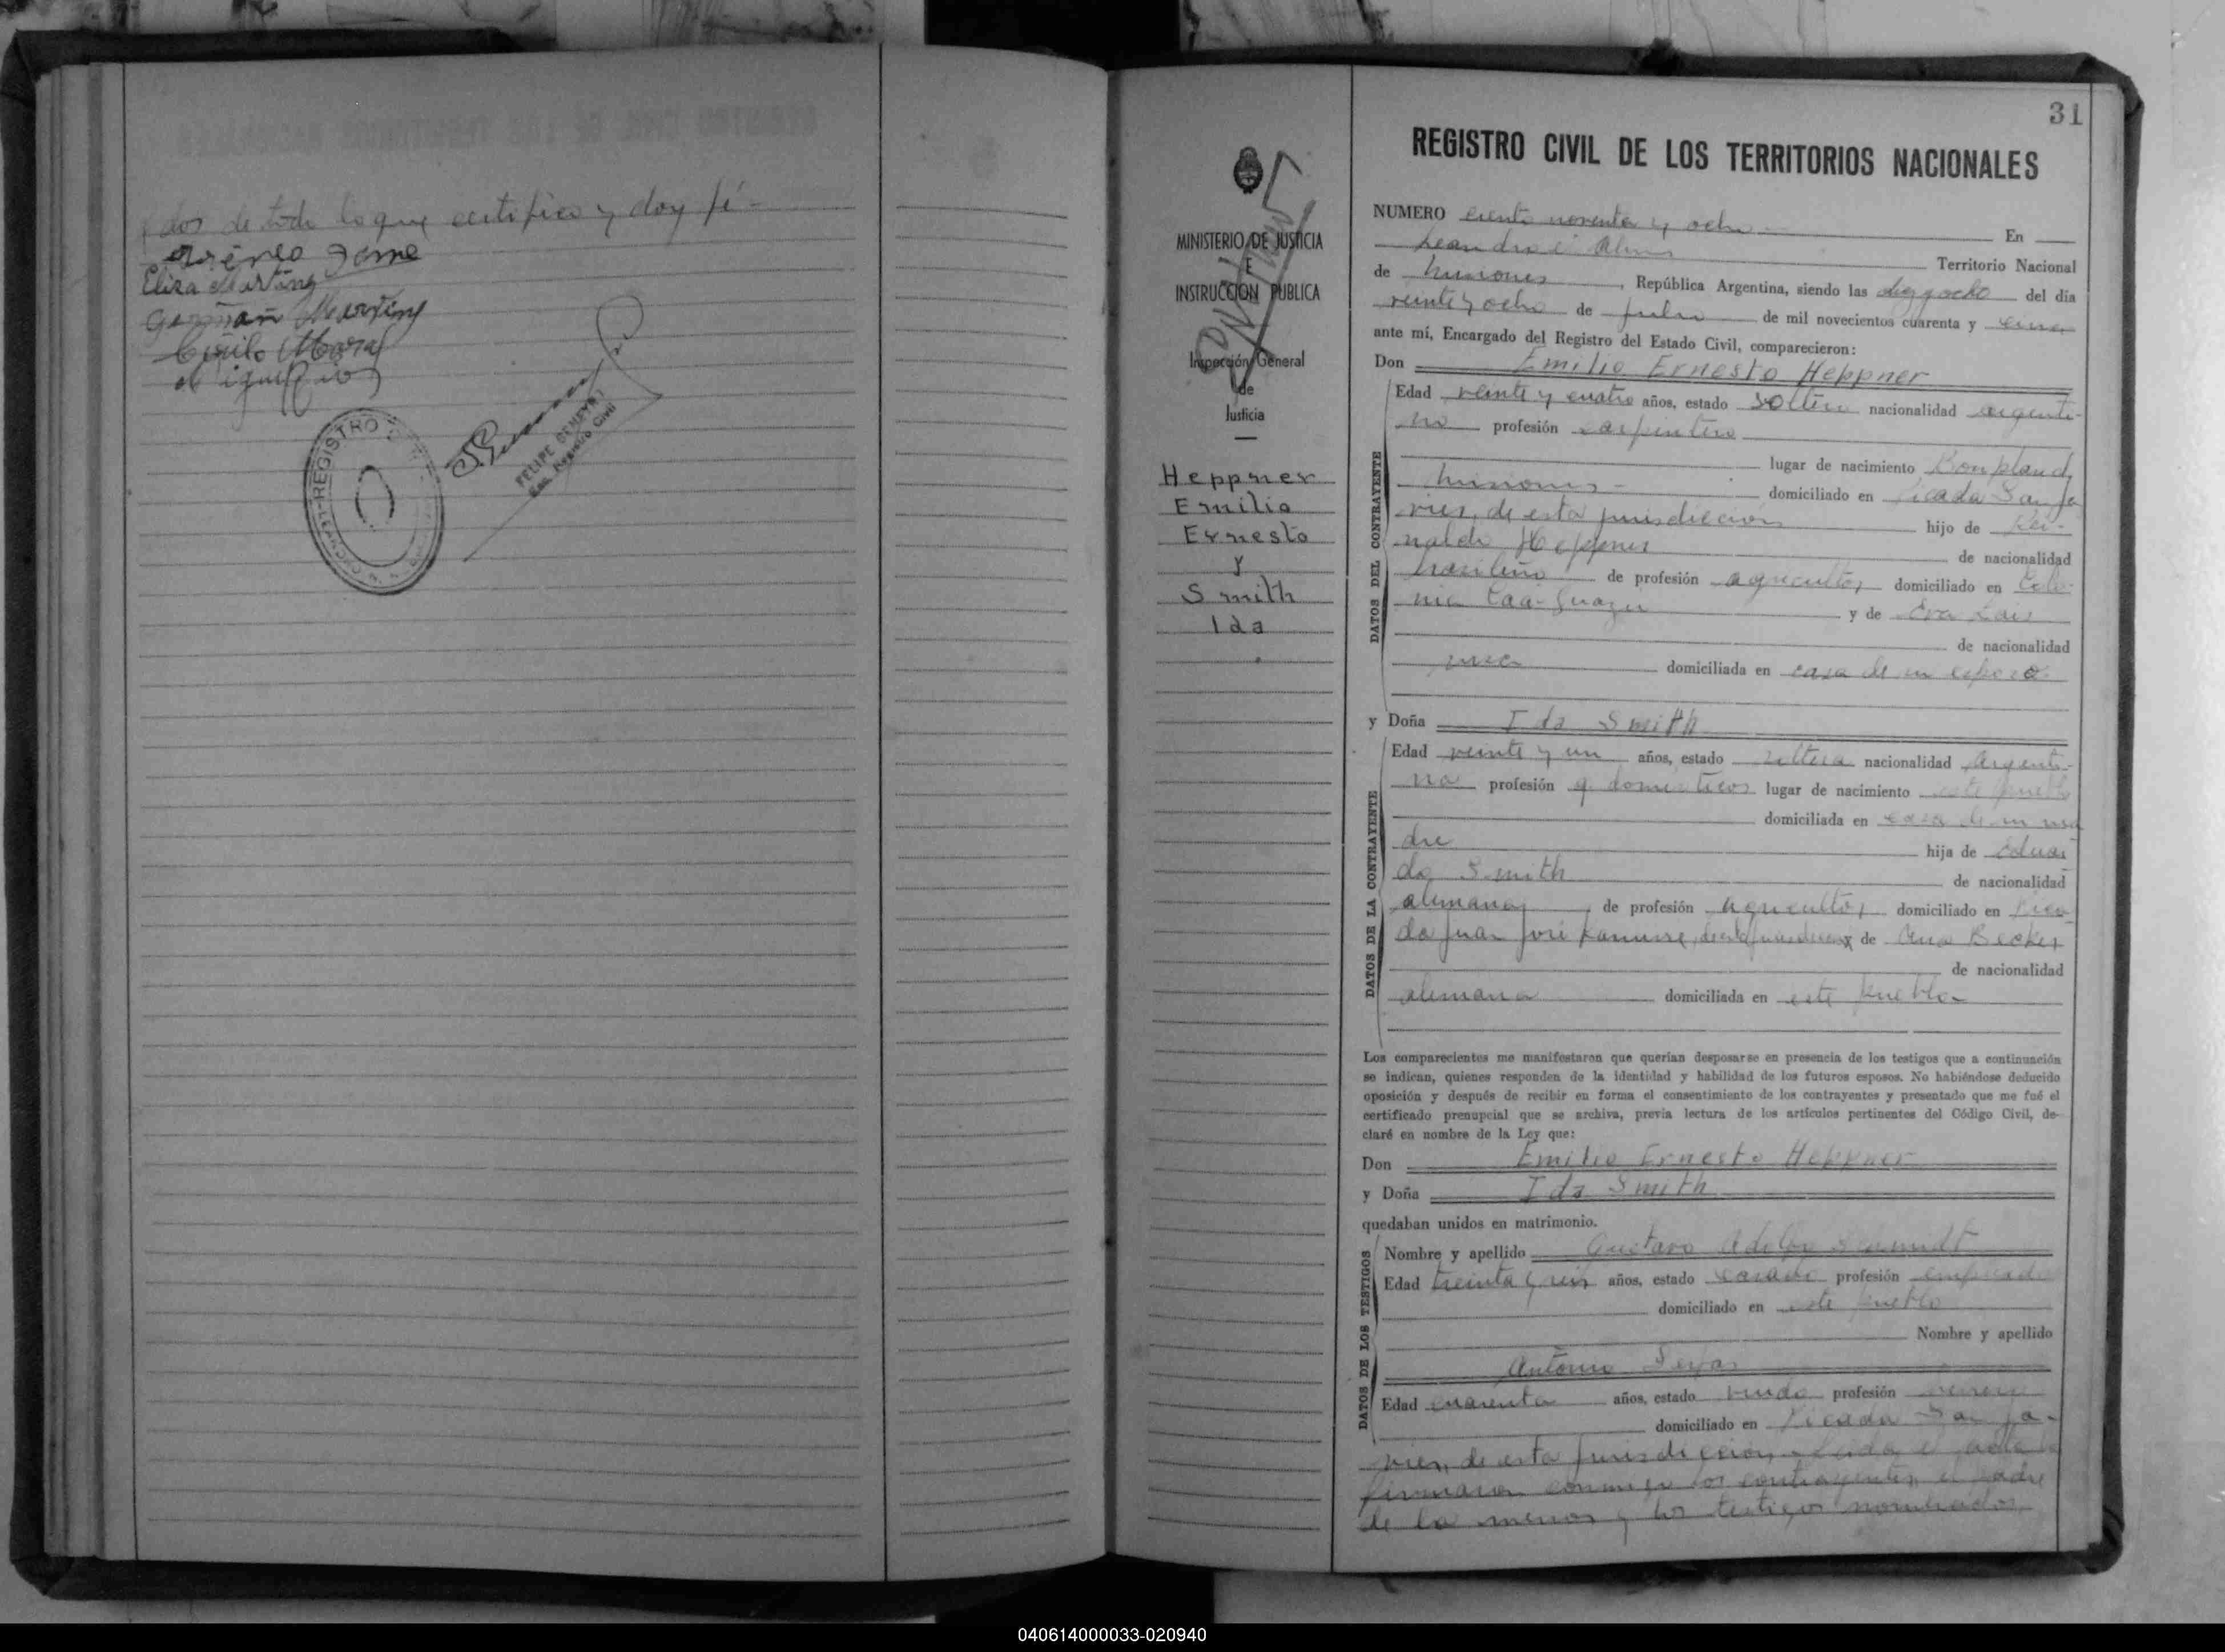 dos de todo lo que certifico y doy fé-
Elisa Martinz
German Martinz
Cirilo
REGISTRO
FELIPE
Enc. Registro Civil
MINISTERIO DE JUSTICIA
E
INSTRUCCION PUBLICA
Inspección General
de
Justicia
Heppner
Emilio
Ernesto
y
Smith
Ida
31
REGISTRO CIVIL DE LOS TERRITORIOS NACIONALES
NUMERO ciento noventa y ocho En
Leandro Alem Territorio Nacional
de Misiones, República Argentina, siendo las diez y ocho del día
veinte y ocho de Julio de mil novecientos cuarenta y cinco
ante mí, Encargado del Registro del Estado Civil, comparecieron:
Don Emilio Ernesto Heppner
DATOS DEL CONTRAYENTE
Edad veinte y cuatro años, estado soltero nacionalidad argenti-
no profesión carpintero
lugar de nacimiento Bonpland,
Misiones- domiciliado en Picada San Ja
vier, de esta jurisdicción hijo de Rei-
naldo Heppner de nacionalidad
brasileño de profesión agricultor domiciliado en Colo-
nia Caa-Guazu y de Eva
de nacionalidad
rusa domiciliada en casa de su esposo
y Doña Ida Smith
DATOS DE LA CONTRAYENTE
Edad veinte y un años, estado soltera nacionalidad Argenti-
na profesión q. domesticos lugar de nacimiento este pueblo
domiciliada en casa de su ma
dre hija de Eduar
do Smith de nacionalidad
alemana, de profesión agricultor domiciliado en Pica
da Juan José y de Ana Becker
de nacionalidad
alemana domiciliada en este pueblo
Los comparecientes me manifestaron que querían desposarse en presencia de los testigos que a continuación
se indican, quienes responden de la identidad y habilidad de los futuros esposos. No habiéndose deducido
oposición y después de recibir en forma el consentimiento de los contrayentes y presentado que me fué el
certificado prenupcial que se archiva, previa lectura de los artículos pertinentes del Código Civil, de-
claré en nombre de la Ley que:
Don Emilio Ernesto Heppner
y Doña Ida Smith
quedaban unidos en matrimonio.
DATOS DE LOS TESTIGOS
Nombre y apellido Gustavo Adolfo Scomidt
Edad treinta y seis años, estado casado profesión empleado
domiciliado en este pueblo
Nombre y apellido
Antonio
Edad cuarenta años, estado viudo profesión
domiciliado en Picada San Ja-
vier, de esta jurisdicción. Leida el acta la
firmaron conmigo los contrayentes, el padre
de la menor y los testigos nombrados
040614000033-020940